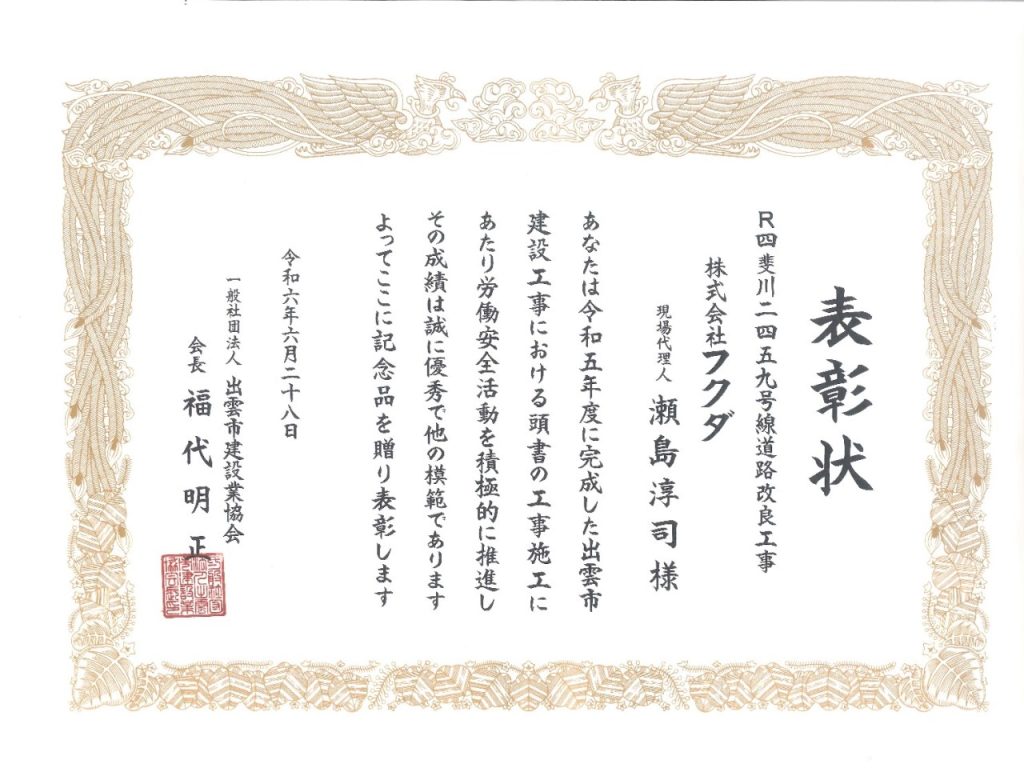 表彰状
R四斐川二四五九号線道路改良工事
株式会社フクダ
現場代理人 瀬島淳司様
あなたは令和五年度に完成した出雲市
建設工事における頭書の工事施工に
あたり労働安全活動を積極的に推進し
その成績は誠に優秀で他の模範であります
よってここに記念品を贈り表彰します
令和六年六月二十八日
一般社団法人 出雲市建設業協会
会長 福代明正